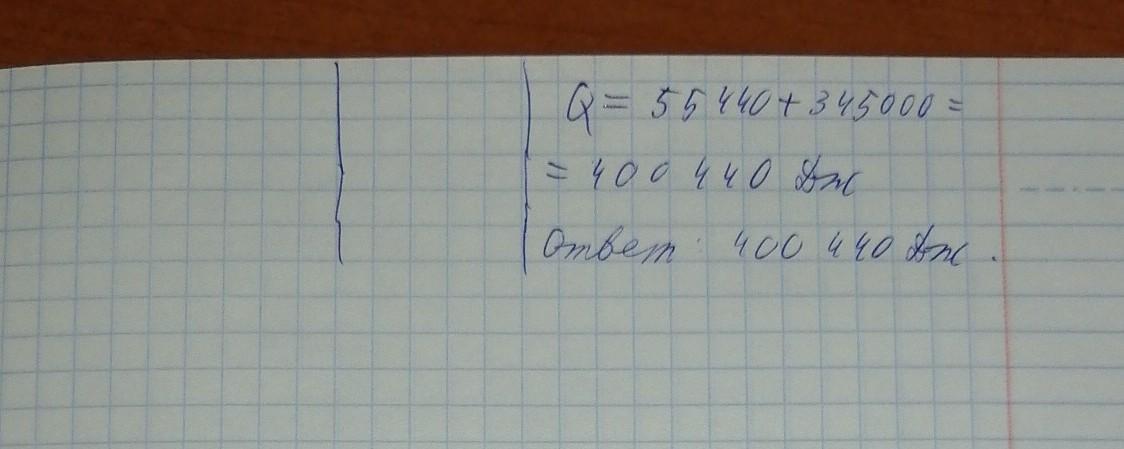 Q = 55 440 + 345000 =
= 400 440 Дж
Ответ: 400 440 Дж.